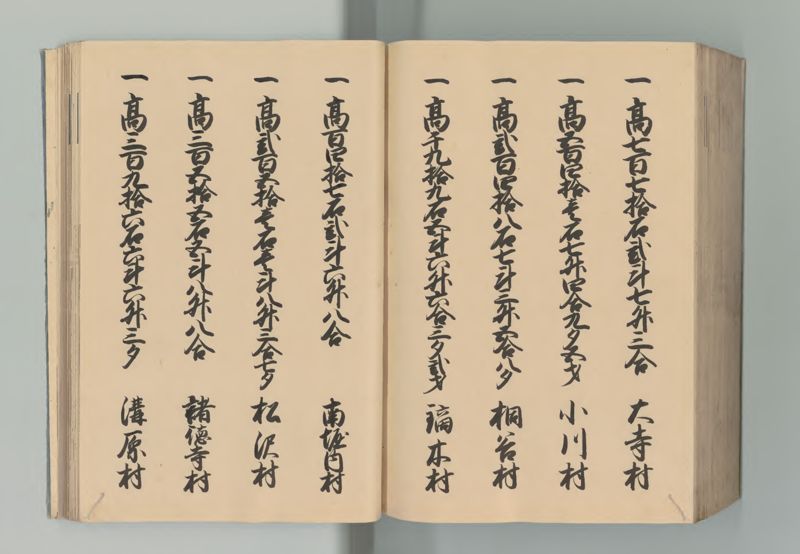 一 高七百七拾石弐斗七升三合 大寺村
一 高五百四拾壱石七升四合九夕五才 小川村
一 高弐百四拾八石七斗三升五合八夕 桐谷村
一 高千九拾九石五斗六升六合三夕弐才 鏑木村
一 高百四拾七石弐斗六升八合 南堀内村
一 高弐百五拾壱石壱斗八升三合七夕 松沢村
一 高三百五拾五石五斗八升八合 諸徳寺村
一 高三百九拾六石六斗六升三夕 溝原村